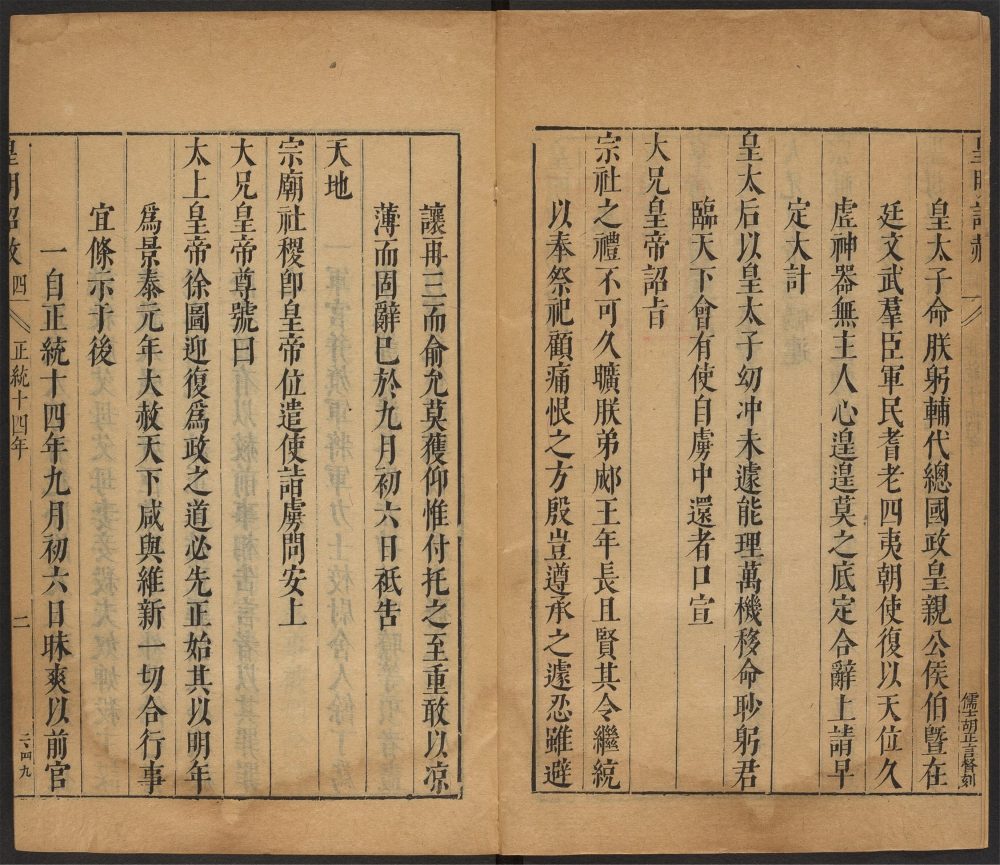 皇明詔赦
皇太子命朕躬輔代總國政皇親公侯伯暨在
廷文武羣臣軍民耆老四夷朝使復以天位久
虛神器無主人心遑遑莫之底定合辭上請早
定大計
皇太后以皇太子幼冲未遽能理萬機移命眇躬君
臨天下會有使自虜中還者口宣
大兄皇帝詔旨
宗社之禮不可久曠朕弟郕王年長且賢其令繼統
以奉祭祀顧痛恨之方殷豈遵承之遽忍雖避
儒士胡正言督刻
讓再三而俞允莫獲仰惟付托之至重敢以凉
薄而固辭已於九月初六日祗告
天地
宗廟社稷卽皇帝位遣使詣虜問安上
大兄皇帝尊號曰
太上皇帝徐圖迎復爲政之道必先正始其以明年
爲景泰元年大赦天下咸與維新一切合行事
宜條示于後
一自正統十四年九月初六日昧爽以前官
皇明詔赦 四 正統十四年 二 二四九